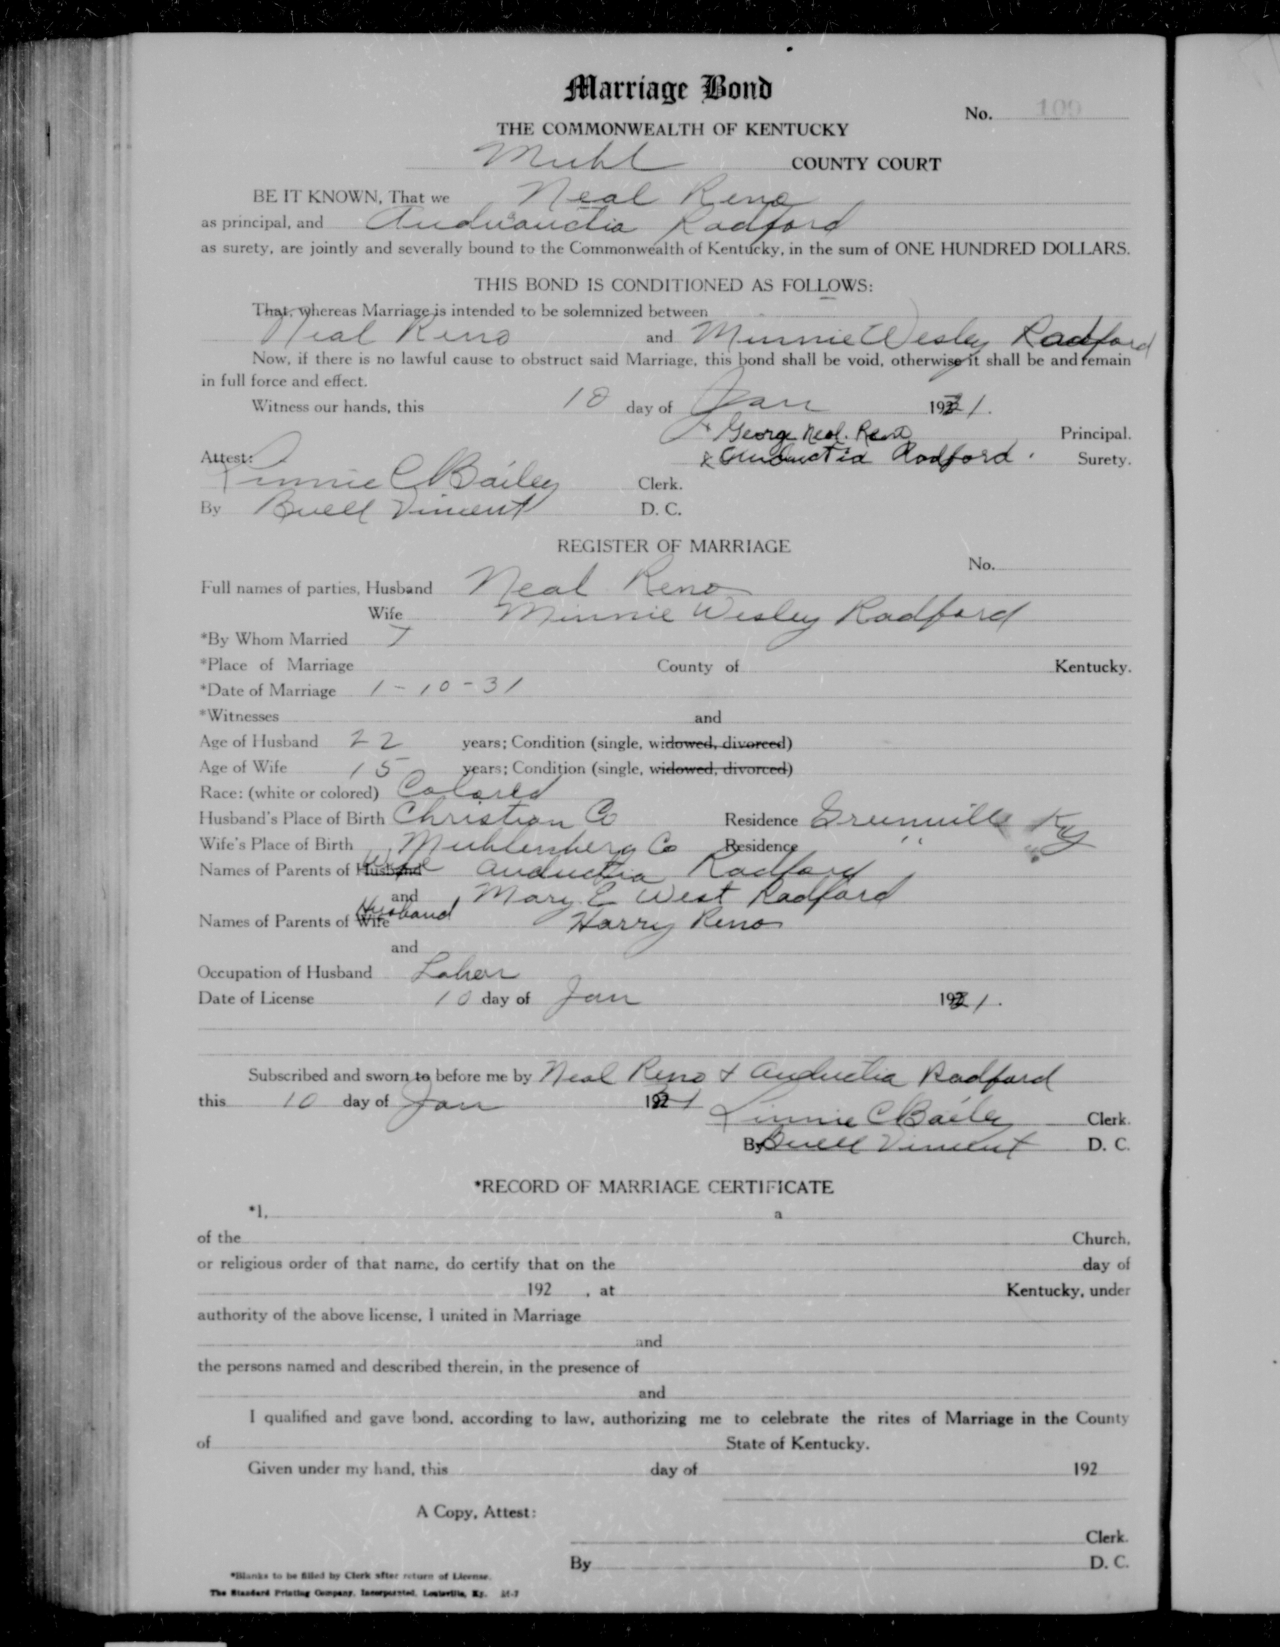 Marriage Bond
No. 100
THE COMMONWEALTH OF KENTUCKY
Muhl COUNTY COURT
BE IT KNOWN, That we Neal Reno
as principal, and Radford
as surety, are jointly and severally bound to the Commonwealth of Kentucky, in the sum of ONE HUNDRED DOLLARS.
THIS BOND IS CONDITIONED AS FOLLOWS:
That, whereas Marriage is intended to be solemnized between
Neal Reno and Minnie Wesley Radford
Now, if there is no lawful cause to obstruct said Marriage, this bond shall be void, otherwise it shall be and remain
in full force and effect.
Witness our hands, this 10 day of Jan 1931.
x George Neal. Reno Principal.
Attest: x Radford. Surety.
Linnie C Bailey Clerk.
By Buell Vincent D. C.
REGISTER OF MARRIAGE
No.
Full names of parties, Husband Neal Reno
Wife Minnie Wesley Radford
*By Whom Married
*Place of Marriage County of Kentucky.
*Date of Marriage 1-10-31
*Witnesses and
Age of Husband 22 years; Condition (single, widowed, divorced)
Age of Wife 15 years; Condition (single, widowed, divorced)
Race: (white or colored) Colored
Husband's Place of Birth Christian Co Residence Greenville Ky
Wife's Place of Birth Muhlenberg Co Residence " "
Names of Parents of Husband Wife Auductia Radford
and Mary E West Radford
Names of Parents of Wife Husband Harry Reno
and
Occupation of Husband Labor
Date of License 10 day of Jan 1931.
Subscribed and sworn to before me by Neal Reno & Auductia Radford
this 10 day of Jan 1931 Linnie C Bailey Clerk.
By Buell Vincent D. C.
*RECORD OF MARRIAGE CERTIFICATE
*I, a
of the Church,
or religious order of that name, do certify that on the day of
192 , at Kentucky, under
authority of the above license, I united in Marriage
and
the persons named and described therein, in the presence of
and
I qualified and gave bond, according to law, authorizing me to celebrate the rites of Marriage in the County
of State of Kentucky.
Given under my hand, this day of 192
A Copy, Attest:
Clerk.
By D. C.
*Blanks to be filled by Clerk after return of License.
The Standard Printing Company, Incorporated, Louisville, Ky.